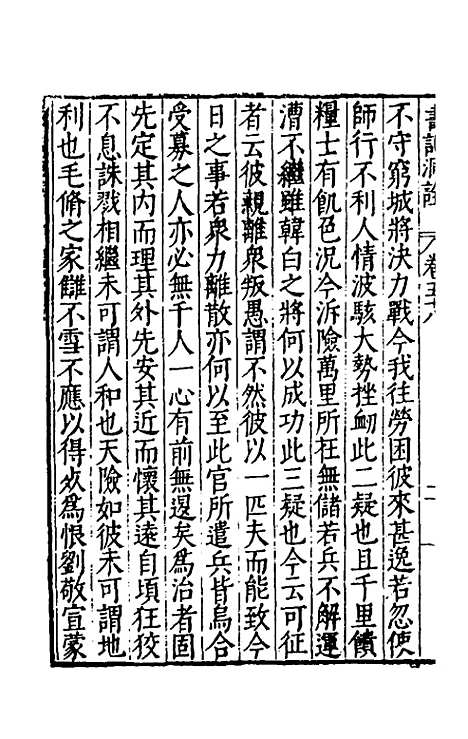 書記洞詮 卷五十八 二
不守窮城將決力戰今我往勞困彼來甚逸若忽使
師行不利人情波駭大勢挫衂此二疑也且千里饋
糧士有飢色況今泝險萬里所在無儲若兵不解運
漕不繼雖韓白之將何以成功此三疑也今云可征
者云彼親離衆叛愚謂不然彼以一匹夫而能致今
日之事若衆力離散亦何以至此官所遣兵皆烏合
受募之人亦必無千人一心有前無退矣爲治者固
先定其内而理其外先安其近而懷其遠自頃狂狡
不息誅戮相繼未可謂人和也天險如彼未可謂地
利也毛脩之家讎不雪不應以得死爲恨劉敬宣蒙